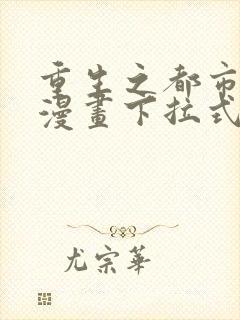 重生之都市
漫畫下拉式
尤宗華